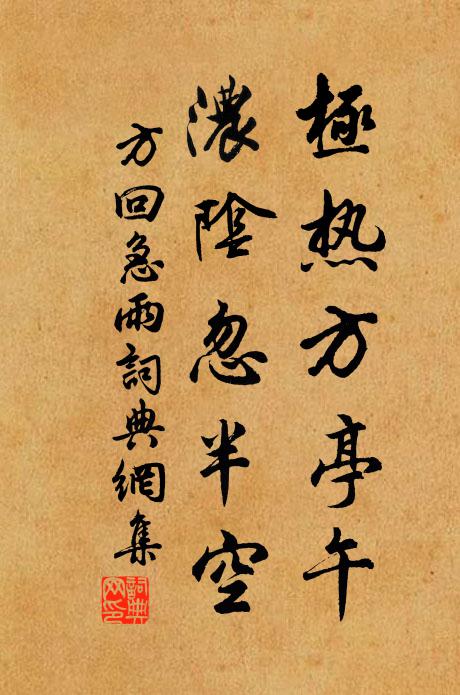 極热方亭午
濃陰忽半空
方回急雨詞典網集
詞典网印